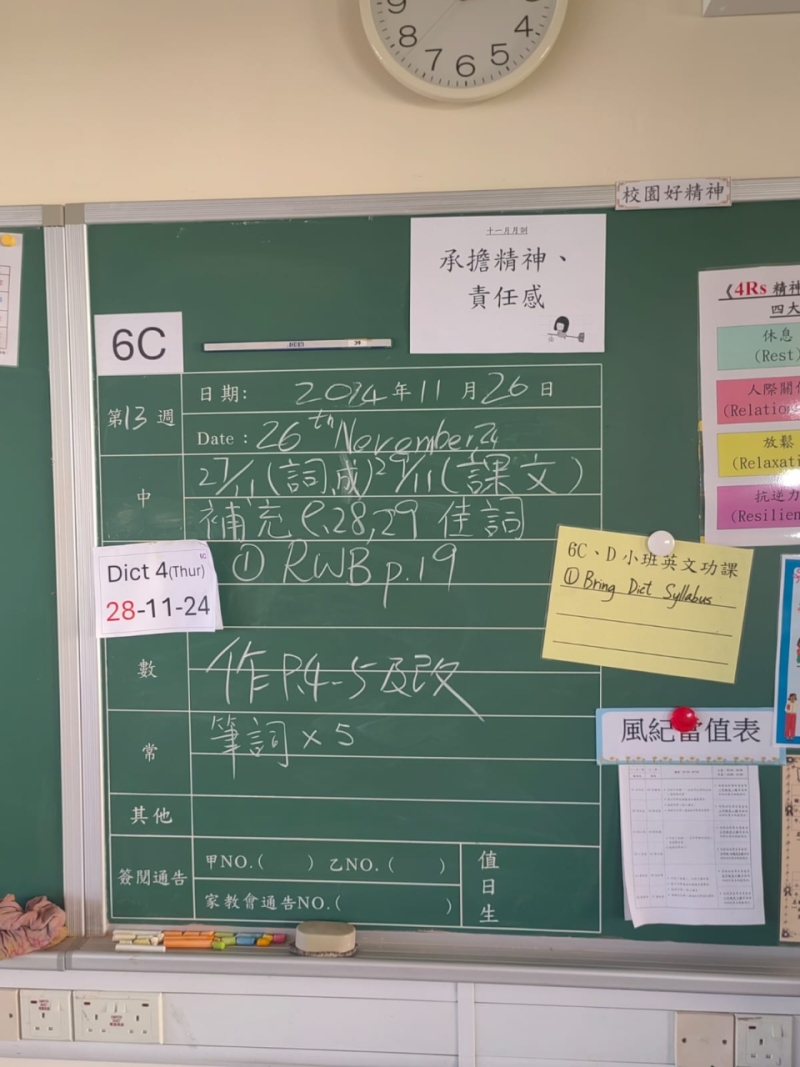 9
8
7
6
5
4
校園好精神
十一月月訓
承擔精神、
責任感
6C
第13週
日期: 2024年11月26日
Date : 26th November 24
中
27/11(詞成) 29/11(課文)
補充P.28,29 佳詞
① RWB p.19
6C
Dict 4(Thur)
28-11-24
數
作P.4-5及改
常
筆詞 x 5
其他
簽閱通告
甲NO.( ) 乙NO.( )
家教會通告NO.( )
值日生
6C、D小班英文功課
① Bring Dict Syllabus
風紀當值表
《4Rs 精神
四大
休息
(Rest)
人際關係
(Relatio
放鬆
(Relaxati
抗逆力
(Resilien